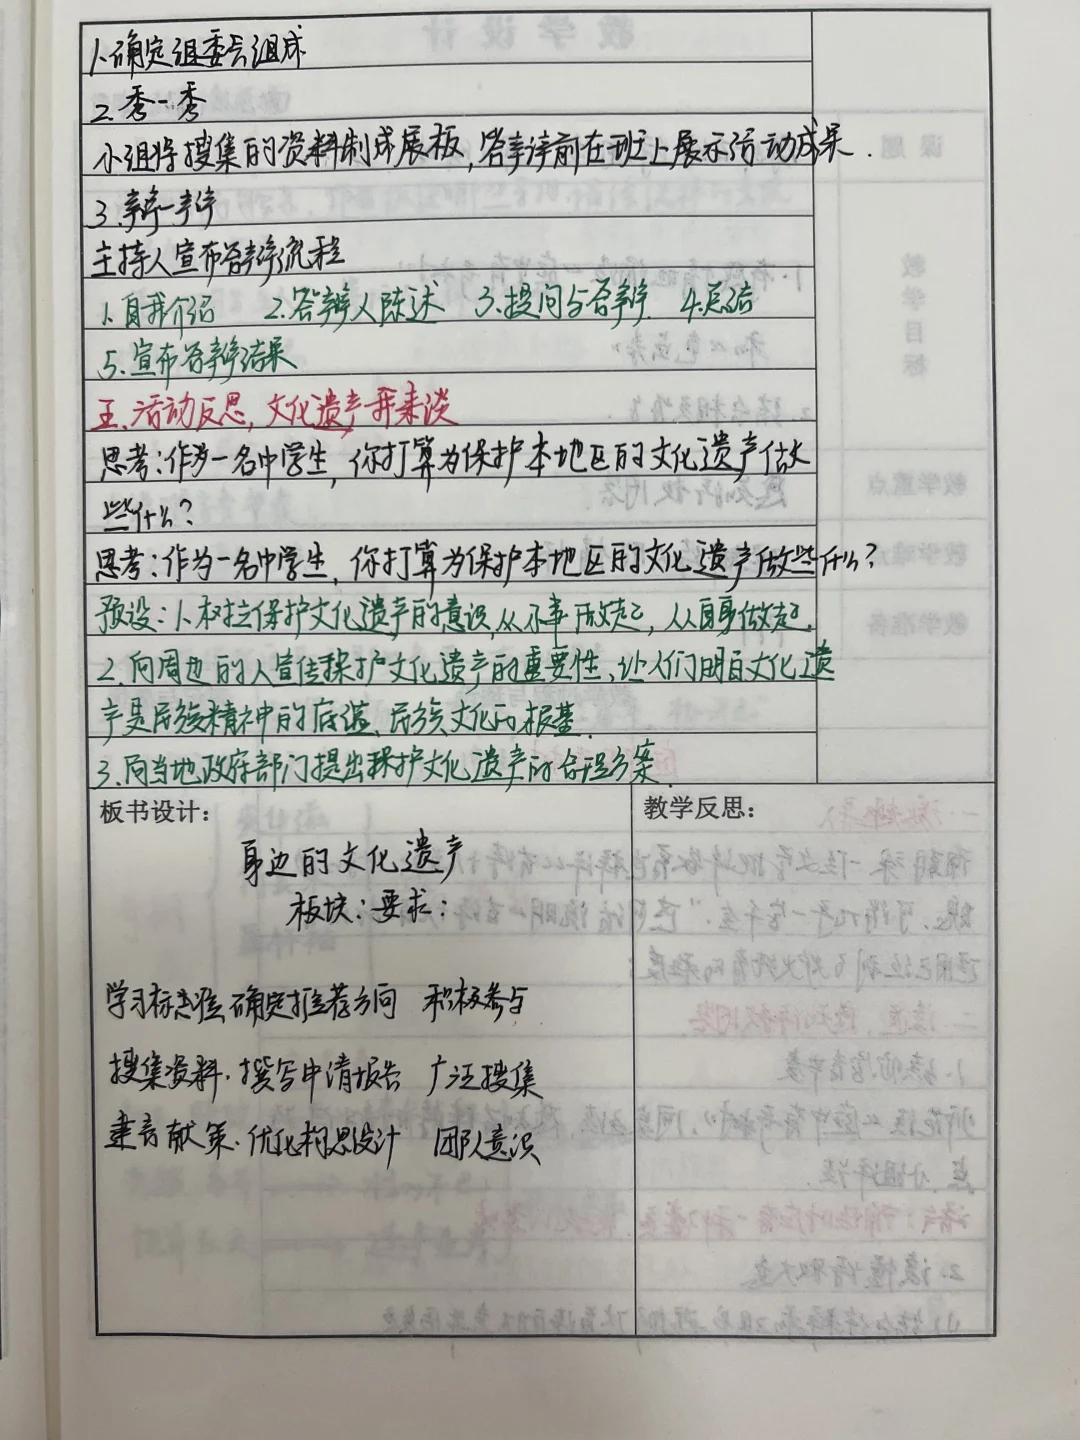 1.确定组委会组成
2.秀一秀
小组将搜集的资料制成展板,答辩前在班上展示活动成果.
3.辩一辩
主持人宣布答辩流程
1.自我介绍 2.答辩人陈述 3.提问与答辩 4.总结
5.宣布答辩结果
五.活动反思,文化遗产我来谈
思考:作为一名中学生,你打算为保护本地区的文化遗产做
些什么?
思考:作为一名中学生,你打算为保护本地区的文化遗产做些什么?
预设:1.树立保护文化遗产的意识,从小事做起,从自身做起.
2.向周边的人宣传保护文化遗产的重要性,让人们明白文化遗
产是民族精神的底蕴、民族文化的根基.
3.向当地政府部门提出保护文化遗产的合理方案.
板书设计: 教学反思:
身边的文化遗产
板块:要求:
学习标准 确定推荐方向 积极参与
搜集资料.撰写申请报告 广泛搜集
建言献策.优化构思设计 团队意识